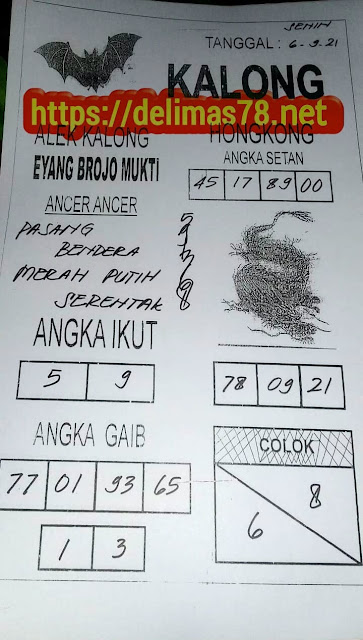 SENIN
TANGGAL : 6-9-21
KALONG
https://delimas78.net
ALEK KALONG
EYANG BROJO MUKTI
HONGKONG
ANGKA SETAN
45 17 89 00
ANCER ANCER
PASANG
BENDERA
MERAH PUTIH
SERENTAK
ANGKA IKUT
5 9
78 09 21
ANGKA GAIB
77 01 93 65
1 3
COLOK
8
6